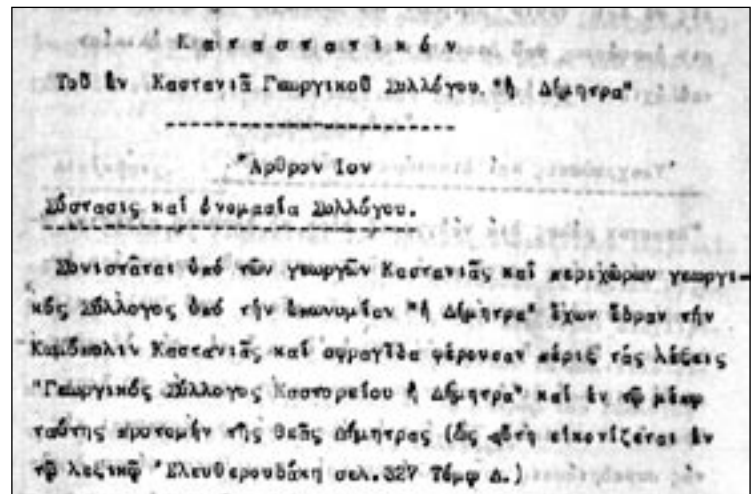 Καταστατικόν
Τοῦ ἐν Καστανιᾷ Γεωργικοῦ Συλλόγου "ἡ Δήμητρα"
Ἄρθρον 1ον
Σύστασις καί ὀνομασία Συλλόγου.
Συνιστᾶται ὑπό τῶν γεωργῶν Καστανιᾶς καί περιχώρων γεωργι-
κός Σύλλογος ὑπό τήν ἐπωνυμίαν "ἡ Δήμητρα" ἔχων ἕδραν τήν
Κωμόπολιν Καστανιᾶς καί σφραγῖδα φέρουσαν πέριξ τάς λέξεις
"Γεωργικός Σύλλογος Καστορείου ἡ Δήμητρα" καί ἐν τῷ μέσῳ
ταύτης προτομήν τῆς θεᾶς Δήμητρας (ὡς αὕτη εἰκονίζεται ἐν
τῷ λεξικῷ Ἐλευθερουδάκη σελ.327 Τόμῳ Δ.)